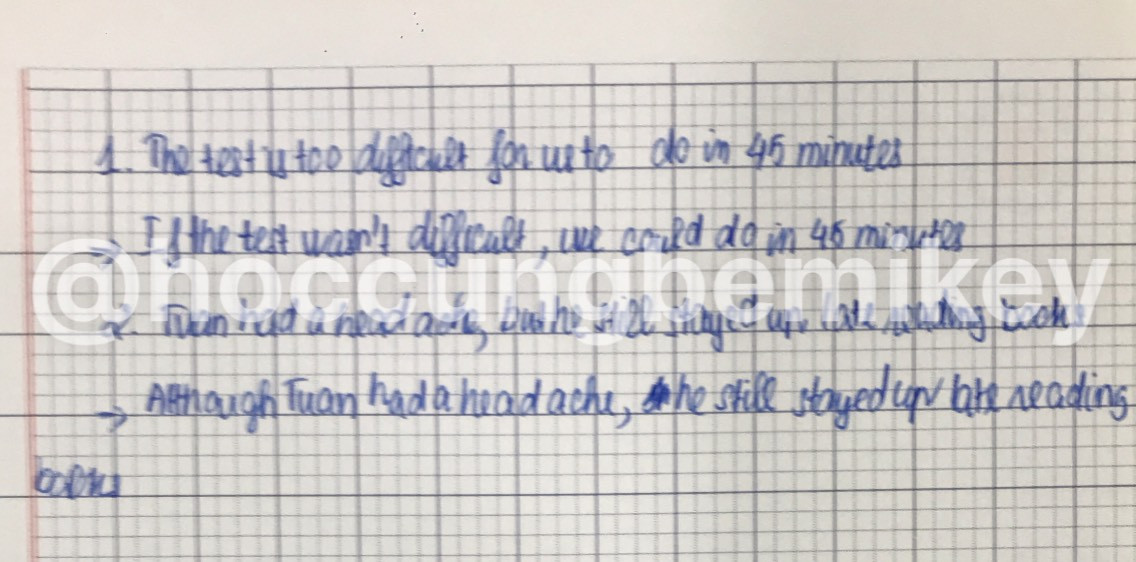 1. The test is too difficult for us to do in 45 minutes
→ If the test wasn't difficult, we could do in 45 minutes
@hoccungbemikey
2. Tuan had a headache, but he still stayed up late reading books
→ Although Tuan had a headache, he still stayed up late reading
books